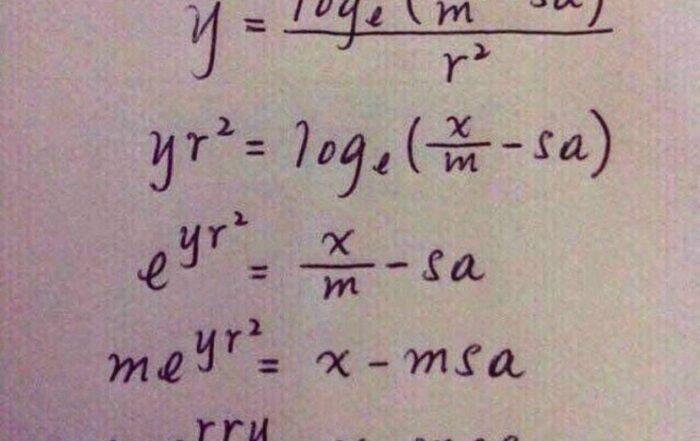 y = log_e(x/m - sa) / r²
yr² = log_e(x/m - sa)
e^yr² = x/m - sa
me^yr² = x - msa
rry